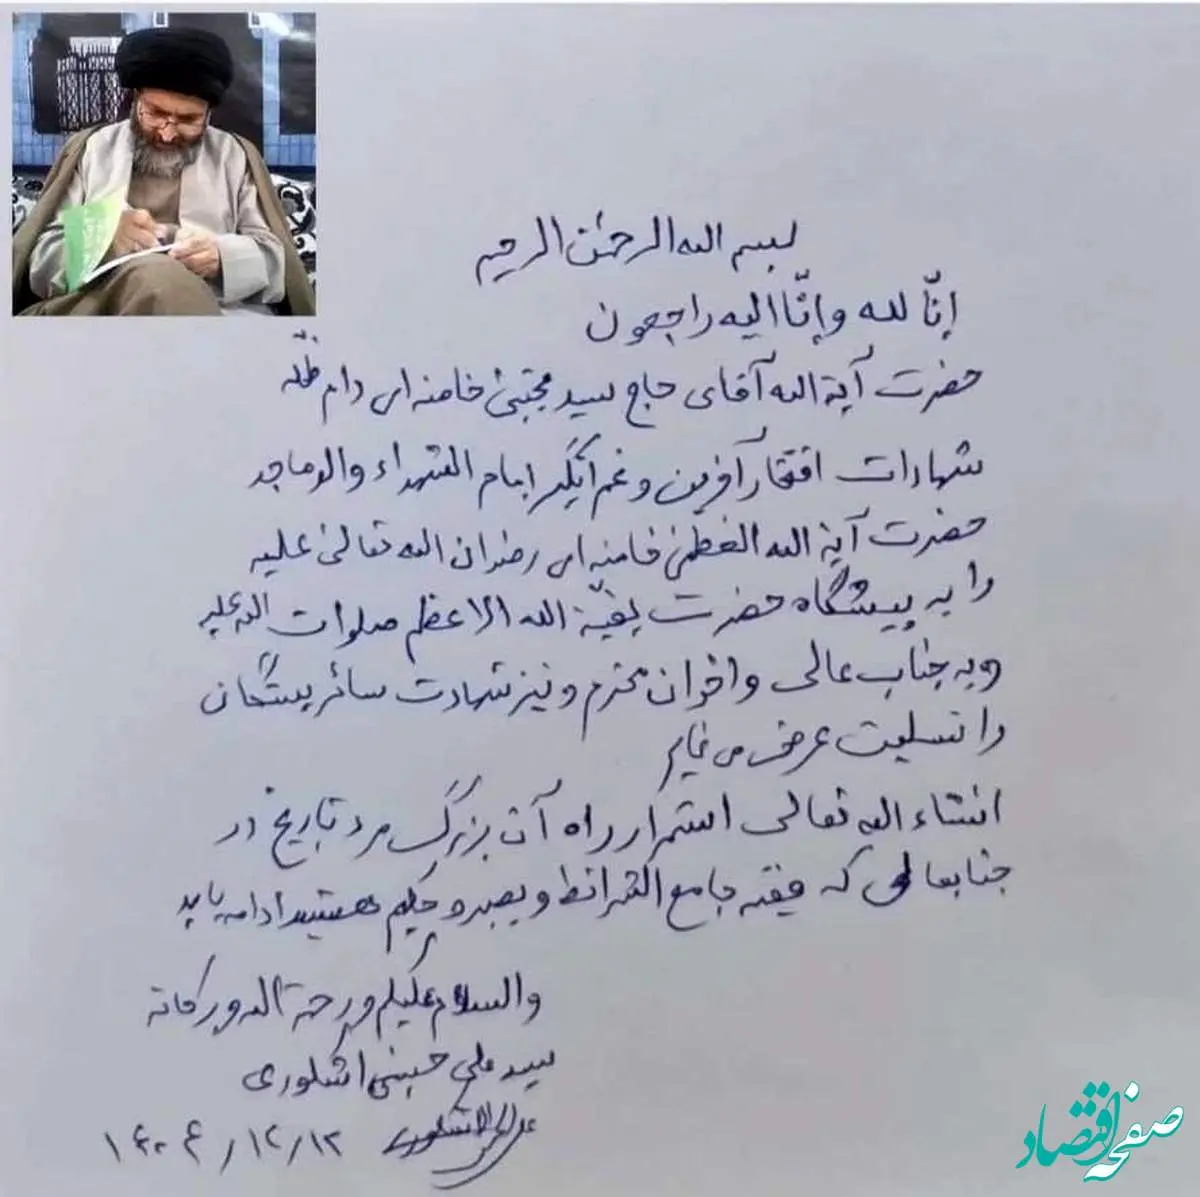 بسم الله الرحمن الرحیم
إنّا لله وإنّا الیه راجعون
حضرت آیة الله آقای حاج سید مجتبیٰ خامنه ای دام ظله
شهادت افتخارآفرین و غم انگیز امام الشهداء والد ماجد
حضرت آیة الله العظمیٰ خامنه ای رضوان الله تعالیٰ علیه
را به پیشگاه حضرت بقیّة الله الاعظم صلوات الله علیه
و به جناب عالی و اخوان محترم و نیز شهادت سائر بستگان
را تسلیت عرض می نمایم
انشاء الله تعالی استمرار راه آن بزرگ مرد تاریخ در
جنابعالی که فقیه جامع الشرائط و بصیر و حکیم هستید ادامه یابد
والسلام علیکم و رحمة الله وبرکاته
سید علی حسینی اشکوری
۱۴۰۴/۱۲/۱۳
صفحه اقتصاد